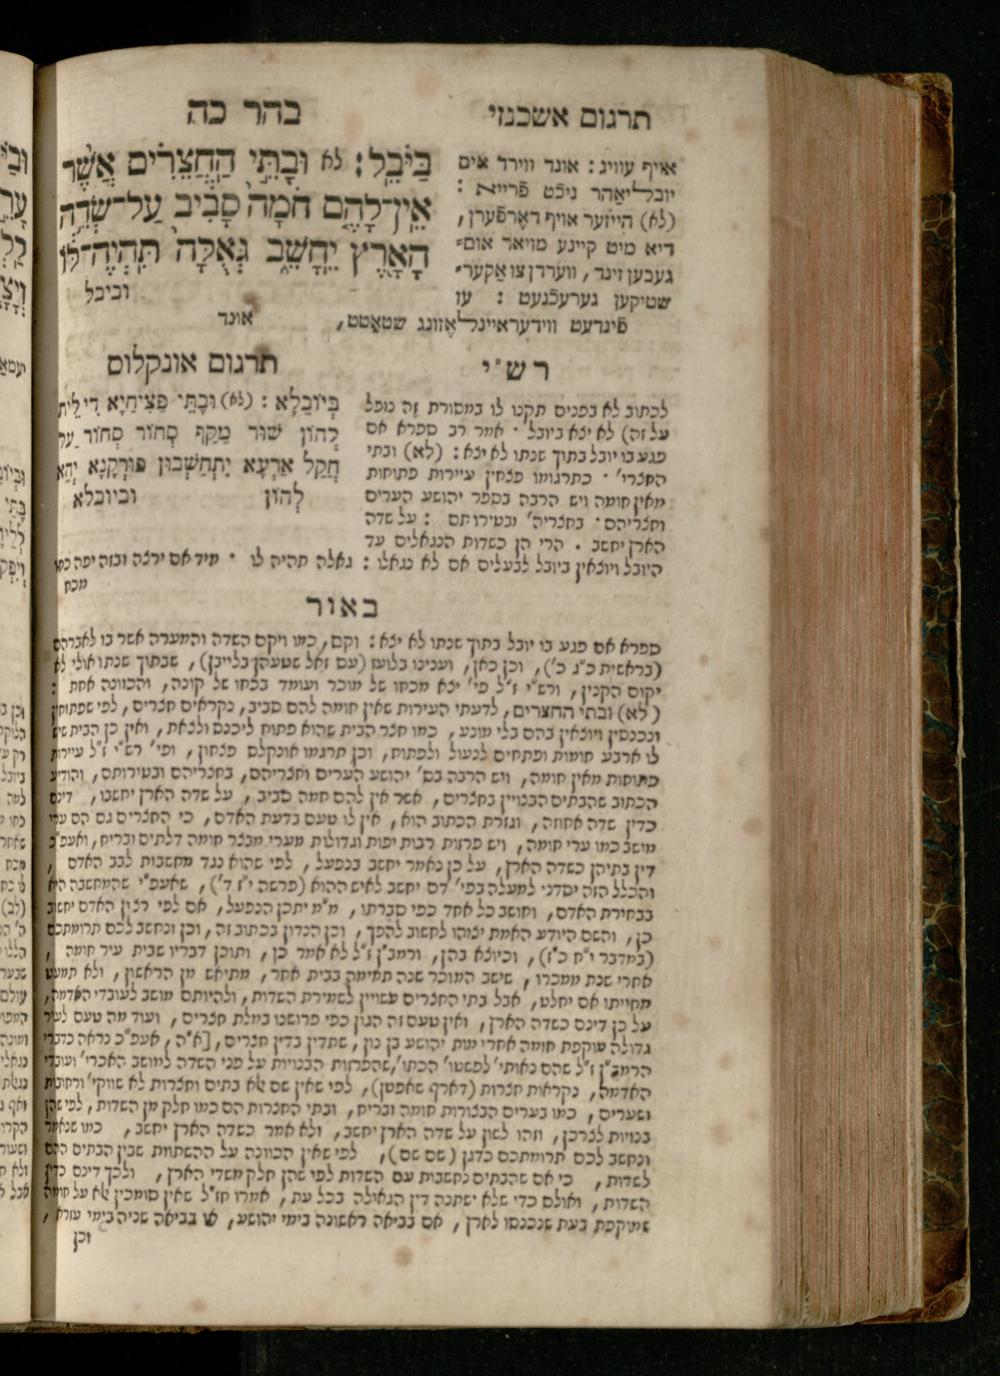 תרגום אשכנזי
בהר כה
אויף עוויג : אונד ווירד אים
יובל־יאהר ניכט פרייא :
(לא) הייזער אויף דאָרפֿערן,
דיא מיט קיינע מויאר אום=
געבען זינד, ווערדן צו אַקער=
שטיקען גערעכֿנעט : עז
פֿינדעט ווידעראיינלאֶזונג שטאַטט,
אונד
בַּיֹּבֵל : לא וּבָתֵּי הַחֲצֵרִים אֲשֶׁר
אֵין־לָהֶם חֹמָה סָבִיב עַל־שְׂדֵה
הָאָרֶץ יֵחָשֵׁב גְּאֻלָּה תִּהְיֶה־לּוֹ
וביבל
רש"י
לכתוב לא בפנים תקנו לו במסורת זה נופל
על זה) לא יצא ביובל · אמר רב ספרא אם
פגע בו יובל בתוך שנתו לא יצא : (לא) ובתי
החצרי' · כתרגומו פצחין עיירות פתוחות
מאין חומה ויש הרבה בספר יהושע הערים
וחצריהם · בחצריה' ובטירותם : על שדה
הארץ יחשב . הרי הן כשדות הנגאלים עד
היובל ויוצאין ביובל לבעלים אם לא נגאלו : גאלה תהיה לו · מיד אם ירצה ובזה יפה כחו
מכח
תרגום אונקלוס
בְּיוֹבֵלָא : (לא) וּבָתֵּי פַצִיחַיָא דִי לֵית
לְהוֹן שׁוּר מַקַּף סְחוֹר סְחוֹר עַל
חֲקַל אַרְעָא יִתְחַשְׁבוּן פּוּרְקָנָא יְהֵא
לְהוֹן וביובלא
באור
ספרא אם פגע בו יובל בתוך שנתו לא יצא : וקם, כמו ויקם השדה והמערה אשר בו לאברהם
(בראשית כ"ג כ'), וכן כאן, ועניינו בלועז (עם זאל שטעהן בלייבן), שבתוך שנתו אולי לא
יקום הקנין, ורש"י ז"ל פי' יצא מכחו של מוכר ועומד בכחו של קונה, והכוונה אחת :
(לא) ובתי החצרים, לדעתי העירות שאין חומה להם סביב, נקראים חצרים, לפי שפתוחין
ונכנסין ויוצאין בהם בלי מונע, כמו חצר הבית שהוא פתוח ליכנס ולצאת, ואין כן הבית שיש
לו ארבע חומות ופתחים לנעול ולפתוח, וכן תרגמו אונקלס פצחון, ופי' רש"י ז"ל עיירות
פתוחות מאין חומה, ויש הרבה בס' יהושע הערים וחצריהם, בחצריהם ובטירותם, והודיע
הכתוב שהבתים הבנויין בחצרים, אשר אין להם חמה סביב, על שדה הארץ יחשבו, דינם
כדין שדה אחוזה, וגזרת הכתוב הוא, אין לו טעם בדעת האדם, כי החצרים גם הם ערי
מושב כמו ערי חומה, ויש פרזות רבות יפות וגדולות מערי מבצר חומה דלתים ובריח, ואעפ"כ
דין בתיהן כשדה הארץ, על כן נאמר יחשב בנפעל, לפי שהוא נגד מחשבות לבב האדם,
והכלל הזה יסדני למעלה בפי' דם יחשב לאיש ההוא (פרשה י"ז ד'), שאעפ"י שהמחשבה היא
בבחירת האדם, וחושב כל אחד כפי סברתו, מ"מ יתכן הנפעל, אם לפי רצון האדם יחשוב
כן, והשם היודע האמת יצוהו לחשוב להפך, וכן הנדון בכתוב זה, וכן ונחשב לכם תרומתכם
(במדבר י"ח כ"ז), וכיוצא בהן, ורמב"ן ז"ל לא אמר כן, ותוכן דבריו שבית עיר חומה,
אחרי שנת ממכרו, שישב המוכר שנה תמימה בבית אחר, מתיאש מן הראשון, ולא תמעט
מחייתו אם יחלט, אבל בתי החצרים עשויין לשמירת השדות, ולהיותם מושב לעובדי האדמה,
על כן דינם כשדה הארץ, ואין טעם זה הגון כפי פרושנו במלת חצרים, ועוד מה טעם לעיר
גדולה מוקפת חומה אחרי מות יהושע בן נון, שתדין בדין חצרים, [א"ה, אעפ"כ נראה כדברי
הרמב"ן ז"ל שהם נאותי' לפשטו' הכתו', שהפרזות הבנויות על פני השדה למושב האכרי' ועובדי
האדמה, נקראות חצרות (דארף שאפטן), לפי שאין שם אלא בתים וחצרות לא שווקי' ורחובות
ושערים, כמו בערים הבצורות חומה ובריח, ובתי החצרות הם כמו חלק מן השדות, לפי שהן
בנויות לצרכן, וזהו לשון על שדה הארץ יחשב, ולא אמר כשדה הארץ יחשב, כמו שנאמר
ונחשב לכם תרומתכם כדגן (שם שם), לפי שאין הכוונה על ההשתוות שבין הבתים ההם
לשדות, כי אם שהבתים נחשבות עם השדות לפי שהן חלק משדי הארץ, ולכך דינם כדין
השדות, ואולם כדי שלא ישתנה דין הגאולה בכל עת, אמרו חז"ל שאין סומכין אלא על חומה
שמוקפת בעת שנכנסו לארץ, אם בביאה ראשונה בימי יהושע, או בביאה שניה בימי עזרא,
וכן